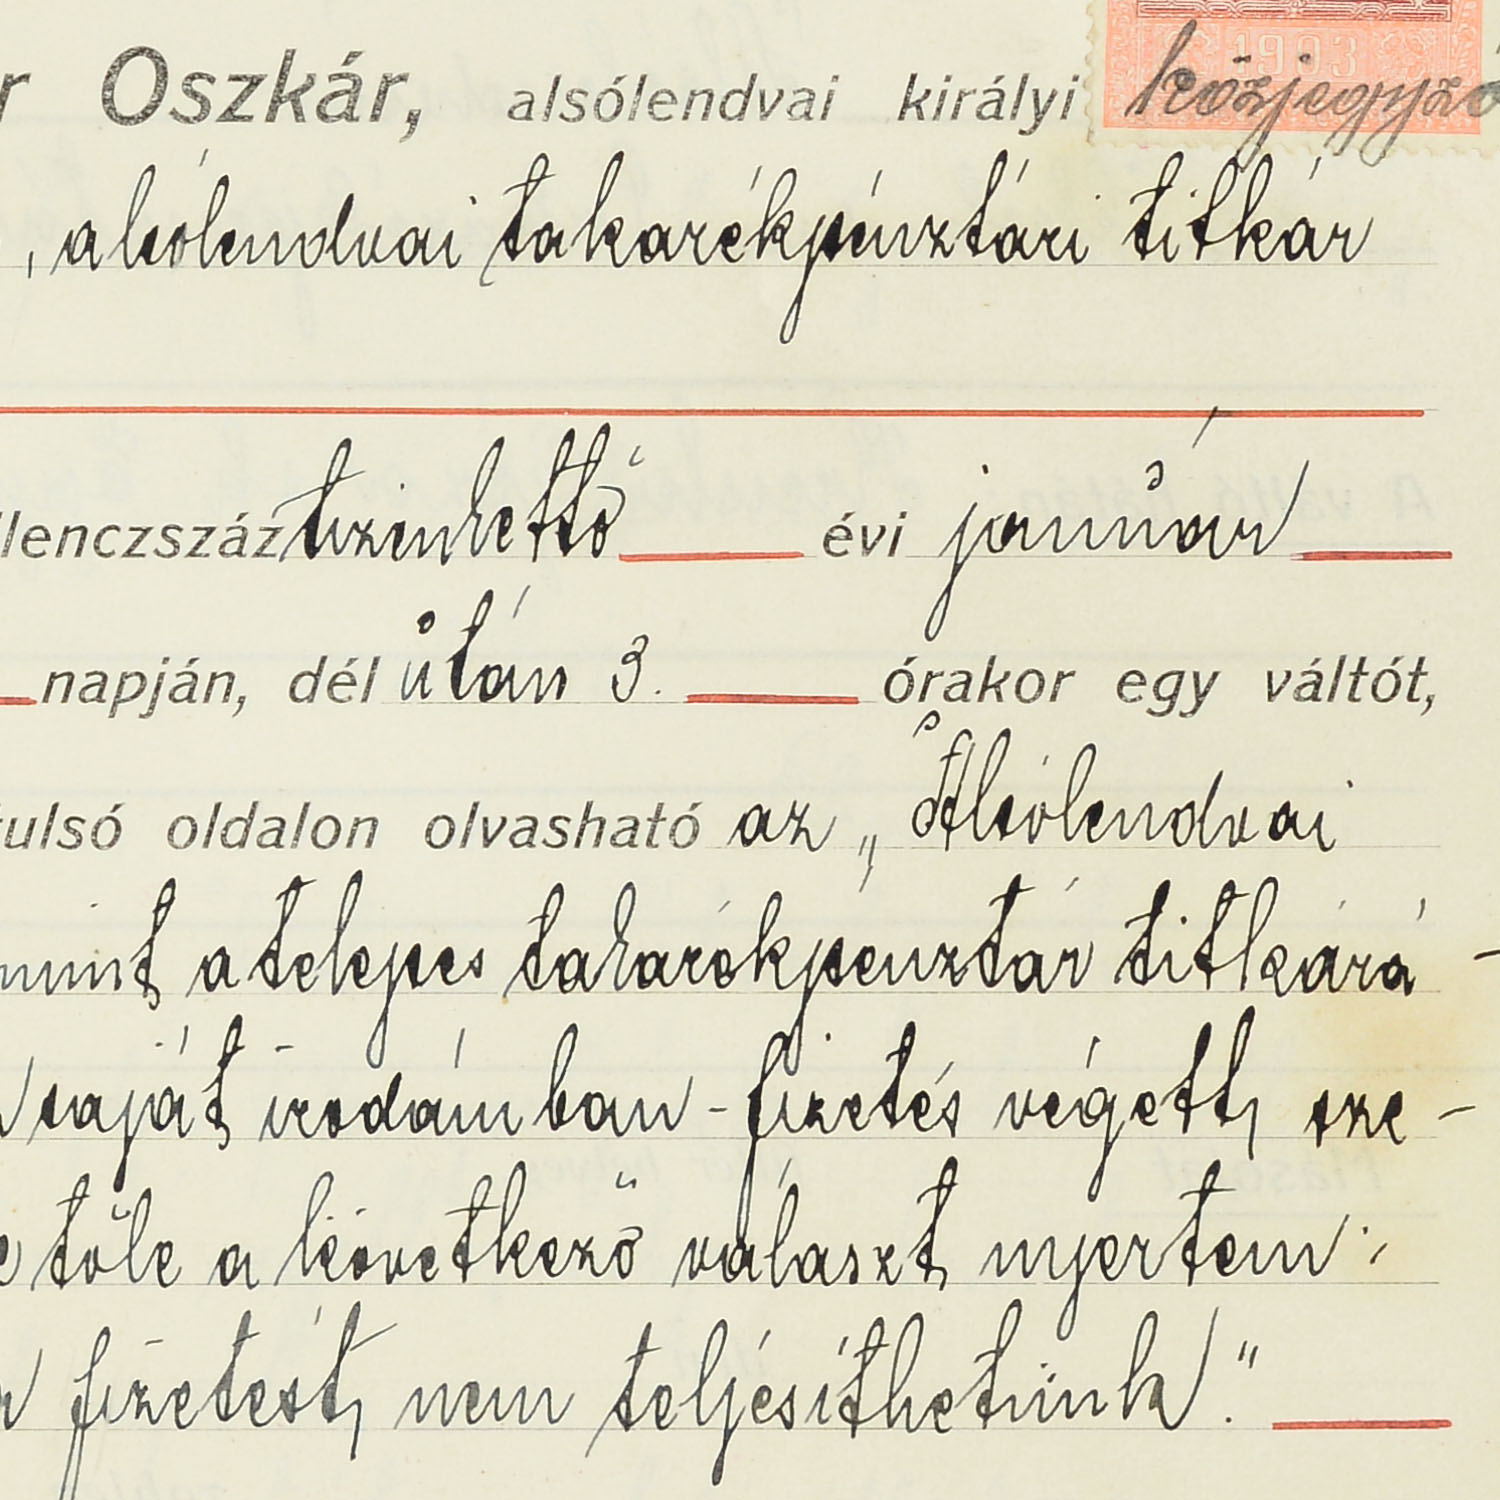 r Oszkár, alsólendvai királyi közjegyző
1903
, alsólendvai takarékpénztári titkár
lenczszáz tizenkettő évi január
napján, dél után 3. órakor egy váltót,
tulsó oldalon olvasható az „Alsólendvai
mint a telepes takarékpénztár titkárá-
saját irodámban - fizetés végett, sze-
e tőle a következő választ nyertem:
fizetést, nem teljesíthetünk."